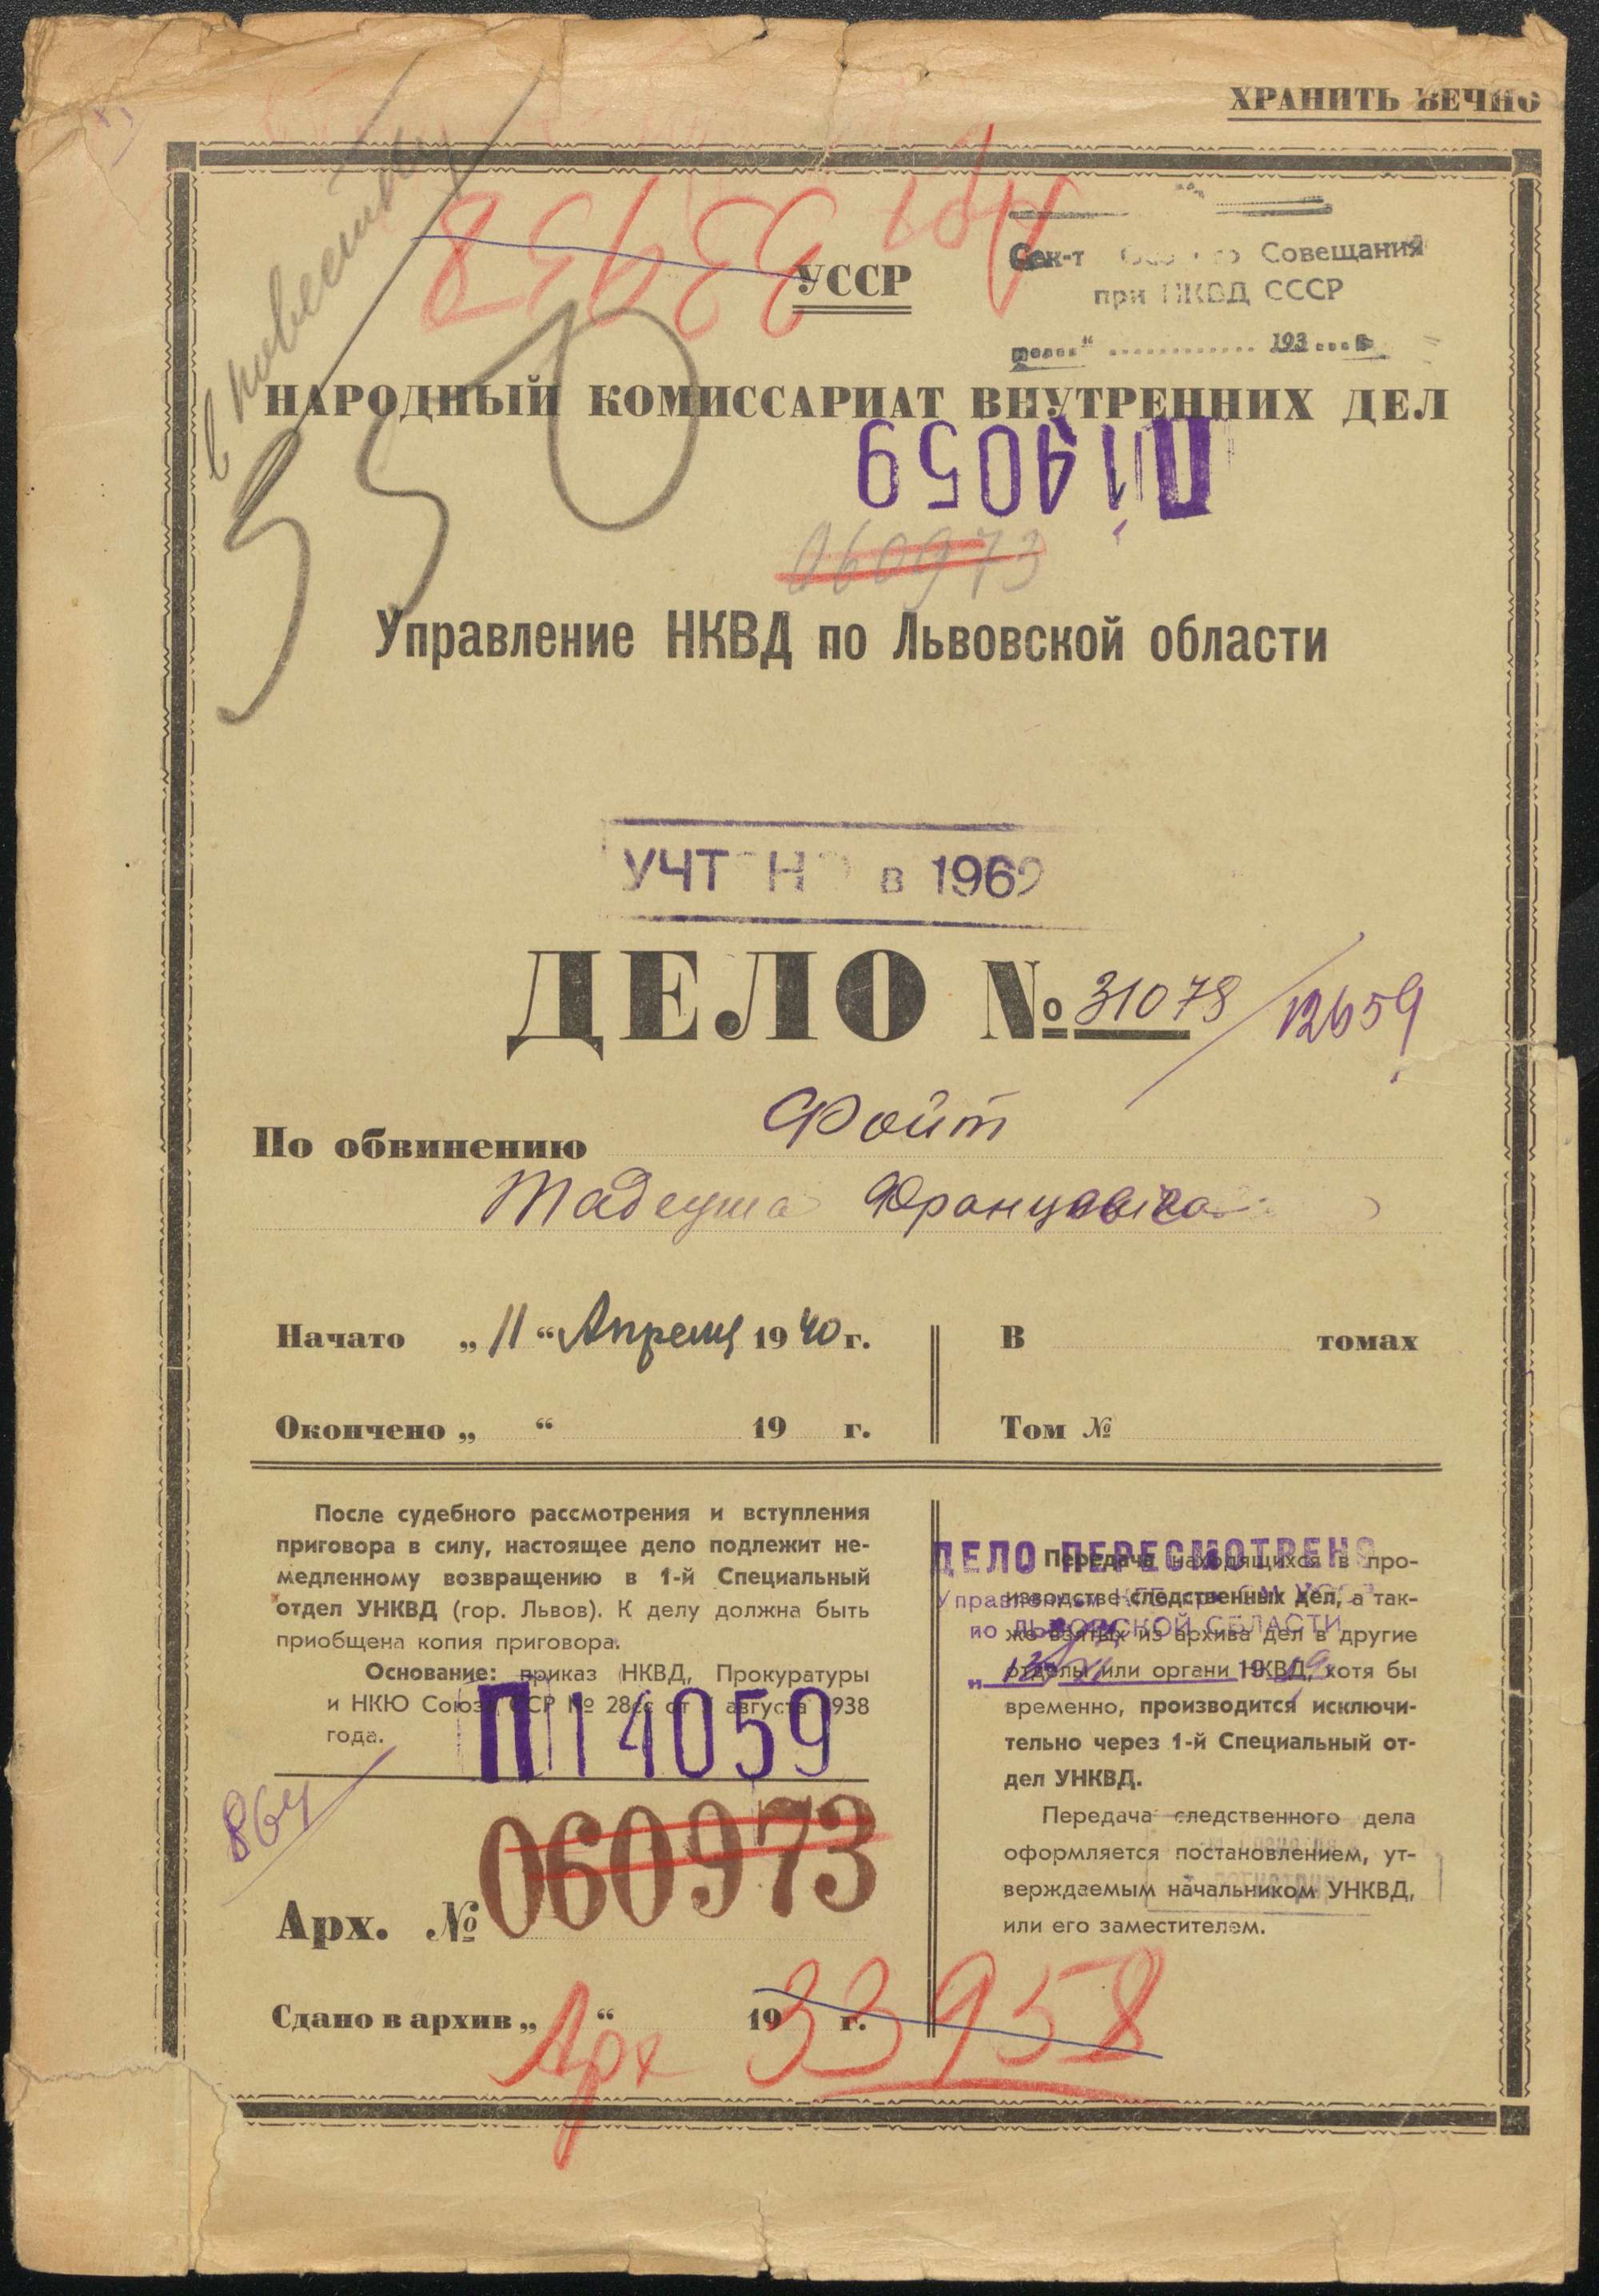 ХРАНИТЬ ВЕЧНО
Арх 33958
УССР
Сек-т Совещания
при НКВД СССР
193
НАРОДНЫЙ КОМИССАРИАТ ВНУТРЕННИХ ДЕЛ
550
П14059
060973
Управление НКВД по Львовской области
УЧТЕНО в 1962
ДЕЛО № 31078/12659
По обвинению Фойт
Тадеуша Францовича
Начато „11“ Апреля 1940 г.
В томах
Окончено „ “ 19 г.
Том №
После судебного рассмотрения и вступления
приговора в силу, настоящее дело подлежит не-
медленному возвращению в 1-й Специальный
отдел УНКВД (гор. Львов). К делу должна быть
приобщена копия приговора.
Основание: приказ НКВД, Прокуратуры
и НКЮ Союза ССР № 28сс от августа 1938
года.
П14059
864
Арх. № 060973
Сдано в архив „ “ 19 г.
Арх 33958
ДЕЛО ПЕРЕСМОТРЕНО
Управлением КГБ при СМ УССР
по ЛЬВОВСКОЙ ОБЛАСТИ
Передача находящихся в про-
изводстве следственных дел, а так-
же взятых из архива дел в другие
отделы или органи НКВД, хотя бы
временно, производится исключи-
тельно через 1-й Специальный от-
дел УНКВД.
Передача следственного дела
оформляется постановлением, ут-
верждаемым начальником УНКВД,
или его заместителем.